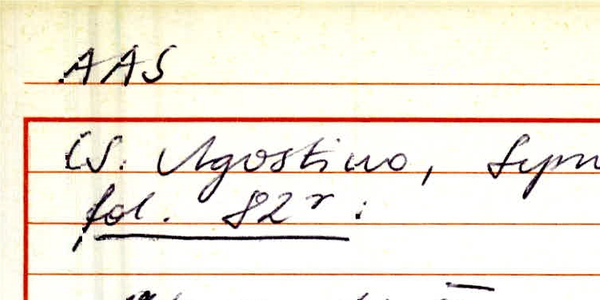 AAS
(S. Agostino,
fol. 82r: